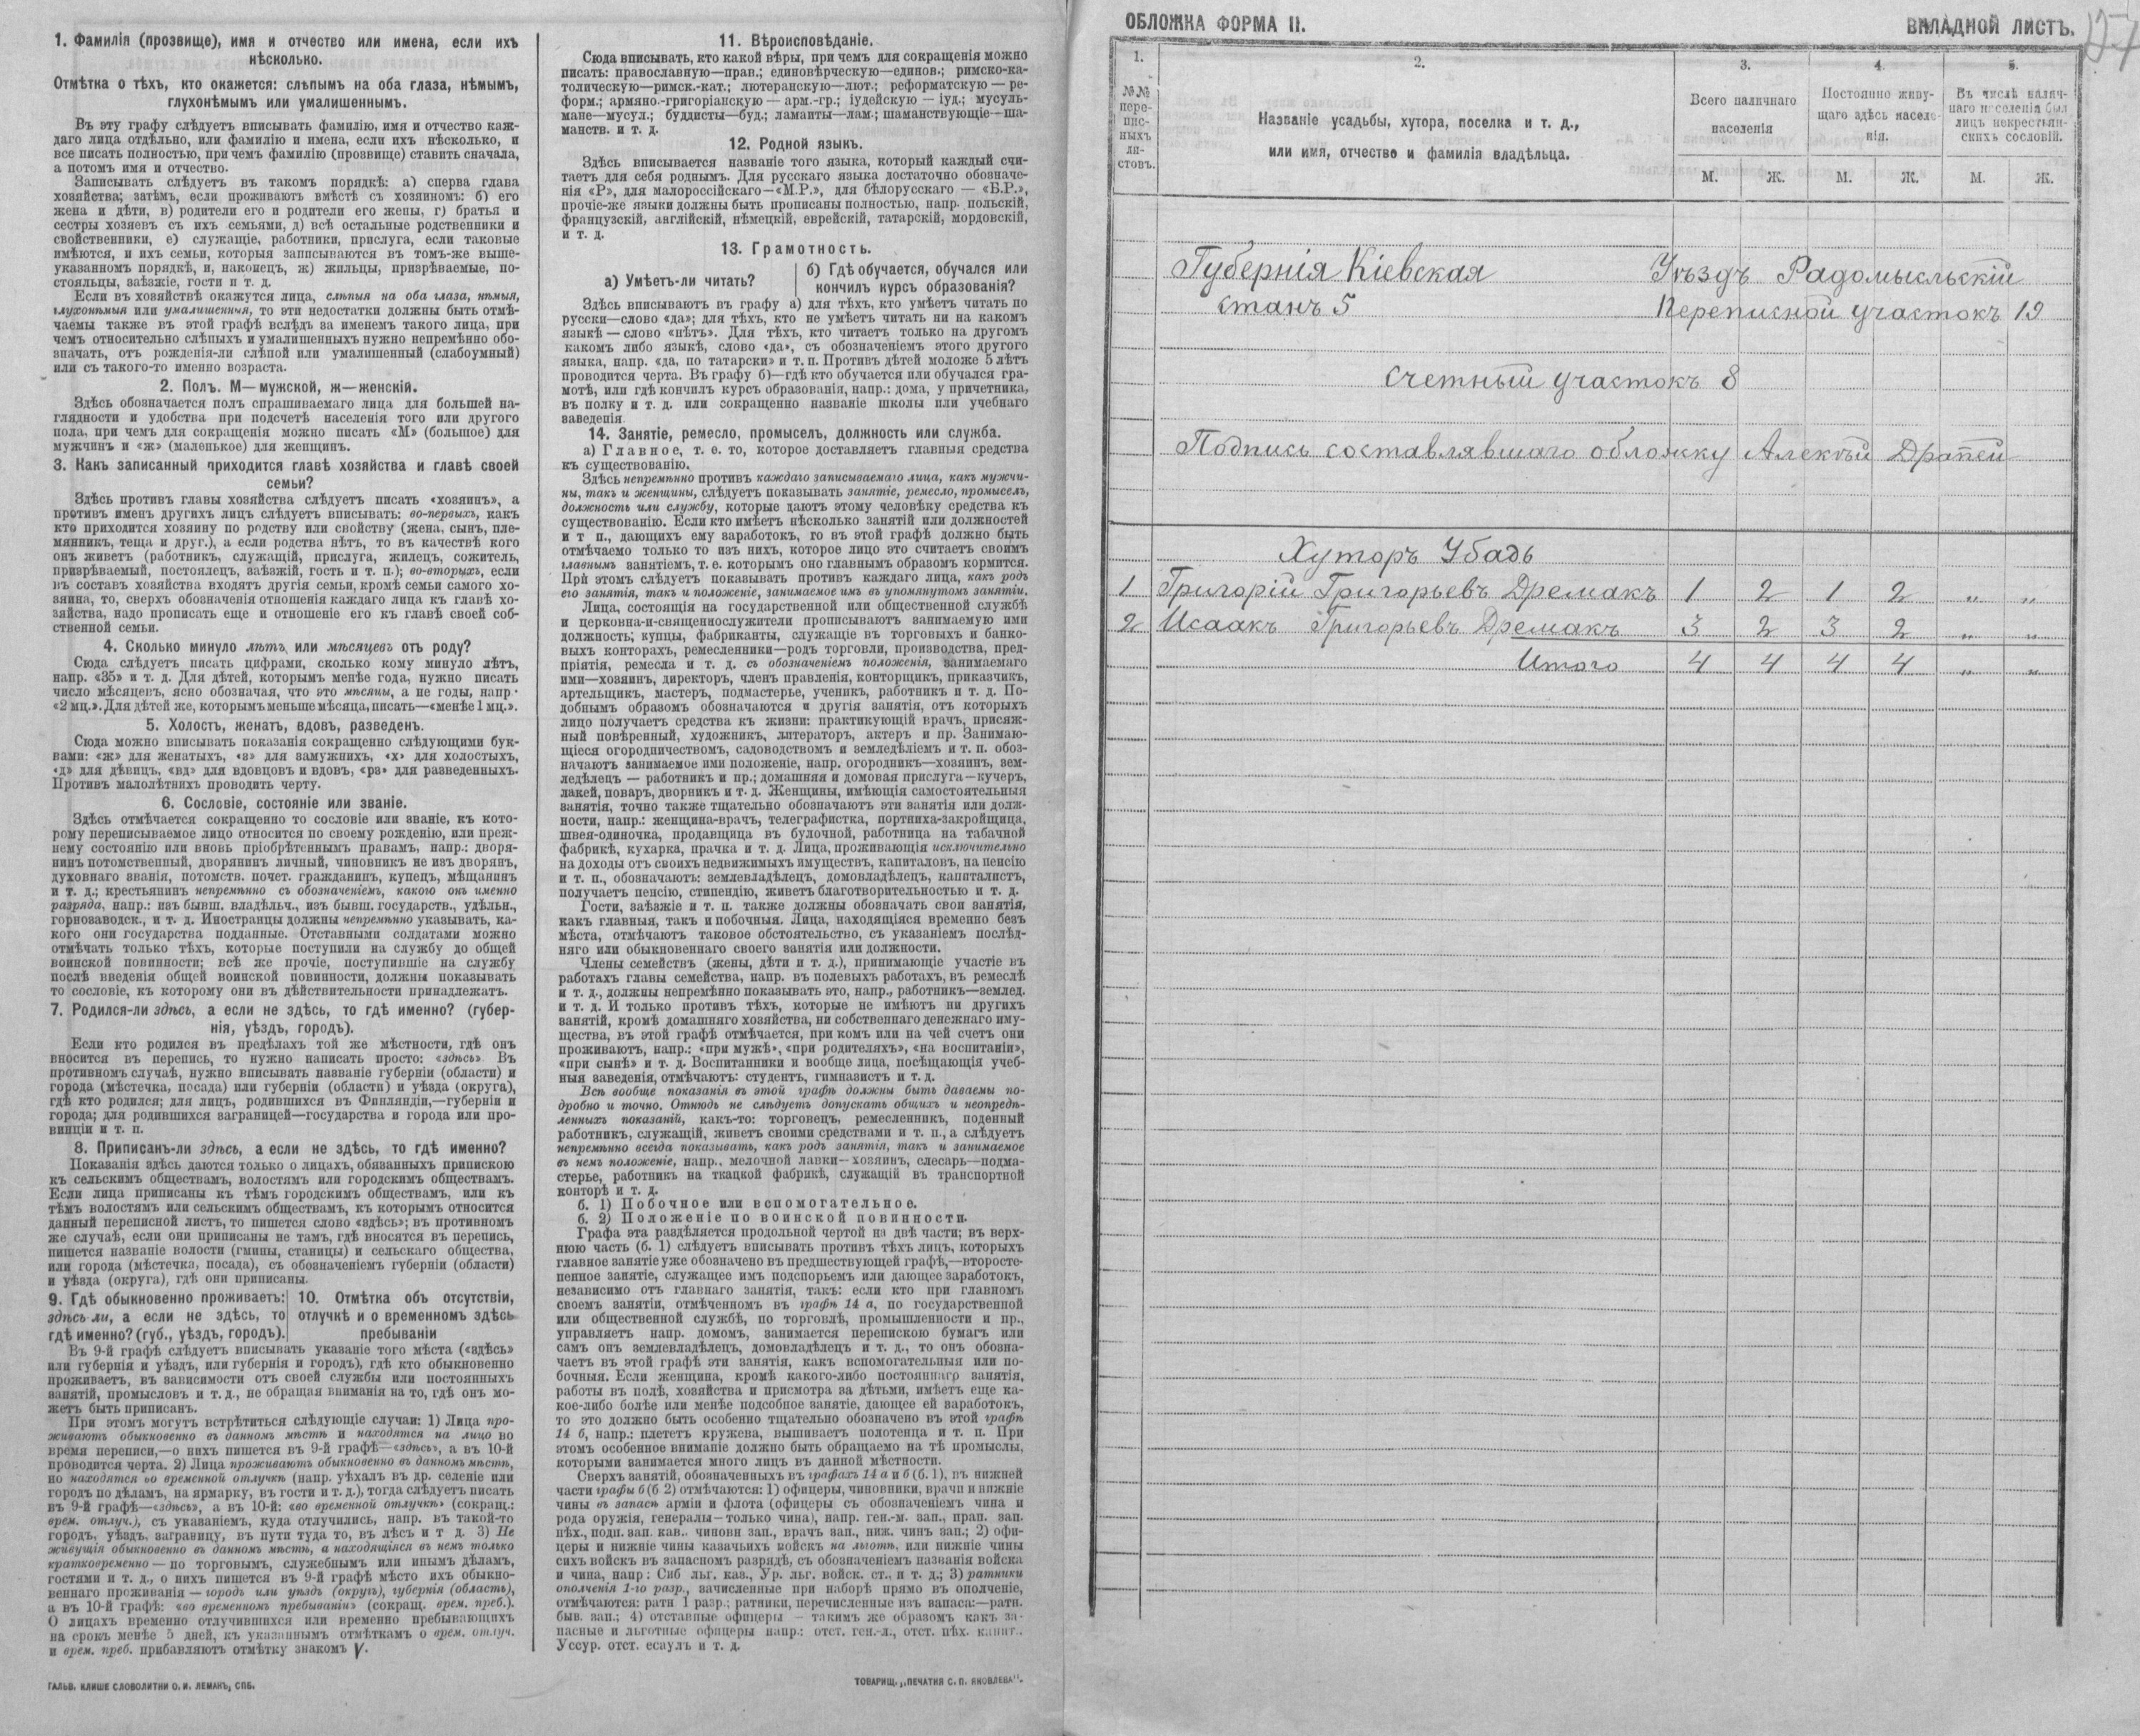 1. Фамилія (прозвище), имя и отчество или имена, если ихъ
нѣсколько.
Отмѣтка о тѣхъ, кто окажется: слѣпымъ на оба глаза, нѣмымъ,
глухонѣмымъ или умалишеннымъ.
Въ эту графу слѣдуетъ вписывать фамилію, имя и отчество каж-
даго лица отдѣльно, или фамилію и имена, если ихъ нѣсколько, и
все писать полностью, при чемъ фамилію (прозвище) ставить сначала,
а потомъ имя и отчество.
Записывать слѣдуетъ въ такомъ порядкѣ: а) сперва глава
хозяйства; затѣмъ, если проживаютъ вмѣстѣ съ хозяиномъ: б) его
жена и дѣти, в) родители его и родители его жены, г) братья и
сестры хозяевъ съ ихъ семьями, д) всѣ остальные родственники и
свойственники, е) служащіе, работники, прислуга, если таковые
имѣются, и ихъ семьи, которыя записываются въ томъ-же выше-
указанномъ порядкѣ, и, наконецъ, ж) жильцы, призрѣваемые, по-
стояльцы, заѣзжіе, гости и т. д.
Если въ хозяйствѣ окажутся лица, слѣпыя на оба глаза, нѣмыя,
глухонѣмыя или умалишенныя, то эти недостатки должны быть отмѣ-
чаемы также въ этой графѣ вслѣдъ за именемъ такого лица, при
чемъ относительно слѣпыхъ и умалишенныхъ нужно непремѣнно обо-
значать, отъ рожденія-ли слѣпой или умалишенный (слабоумный)
или съ такого-то именно возраста.
2. Полъ. М—мужской, ж—женскій.
Здѣсь обозначается полъ спрашиваемаго лица для большей на-
глядности и удобства при подсчетѣ населенія того или другого
пола, при чемъ для сокращенія можно писать «М» (большое) для
мужчинъ и «ж» (маленькое) для женщинъ.
3. Какъ записанный приходится главѣ хозяйства и главѣ своей
семьи?
Здѣсь противъ главы хозяйства слѣдуетъ писать «хозяинъ», а
противъ именъ другихъ лицъ слѣдуетъ вписывать: во-первыхъ, какъ
кто приходится хозяину по родству или свойству (жена, сынъ, пле-
мянникъ, теща и друг.), а если родства нѣтъ, то въ качествѣ кого
онъ живетъ (работникъ, служащій, прислуга, жилецъ, сожитель,
призрѣваемый, постоялецъ, заѣзжій, гость и т. п.); во-вторыхъ, если
въ составъ хозяйства входятъ другія семьи, кромѣ семьи самого хо-
зяина, то, сверхъ обозначенія отношенія каждаго лица къ главѣ хо-
зяйства, надо прописать еще и отношеніе его къ главѣ своей соб-
ственной семьи.
4. Сколько минуло лѣтъ или мѣсяцевъ отъ роду?
Сюда слѣдуетъ писать цифрами, сколько кому минуло лѣтъ,
напр. «35» и т. д. Для дѣтей, которымъ менѣе года, нужно писать
число мѣсяцевъ, ясно обозначая, что это мѣсяцы, а не годы, напр.
«2 мц.». Для дѣтей же, которымъ меньше мѣсяца, писать—«менѣе 1 мц.».
5. Холостъ, женатъ, вдовъ, разведенъ.
Сюда можно вписывать показанія сокращенно слѣдующими бук-
вами: «ж» для женатыхъ, «з» для замужнихъ, «х» для холостыхъ,
«д» для дѣвицъ, «вд» для вдовцовъ и вдовъ, «рз» для разведенныхъ.
Противъ малолѣтнихъ проводить черту.
6. Сословіе, состояніе или званіе.
Здѣсь отмѣчается сокращенно то сословіе или званіе, къ кото-
рому переписываемое лицо относится по своему рожденію, или преж-
нему состоянію или вновь пріобрѣтеннымъ правамъ, напр.: дворя-
нинъ потомственный, дворянинъ личный, чиновникъ не изъ дворянъ,
духовнаго званія, потомств. почет. гражданинъ, купецъ, мѣщанинъ
и т. д.; крестьянинъ непремѣнно съ обозначеніемъ, какого онъ именно
разряда, напр.: изъ бывш. владѣльч., изъ бывш. государств., удѣльн.,
горнозаводск., и т. д. Иностранцы должны непремѣнно указывать, ка-
кого они государства подданные. Отставными солдатами можно
отмѣчать только тѣхъ, которые поступили на службу до общей
воинской повинности; всѣ же прочіе, поступившіе на службу
послѣ введенія общей воинской повинности, должны показывать
то сословіе, къ которому они въ дѣйствительности принадлежатъ.
7. Родился-ли здѣсь, а если не здѣсь, то гдѣ именно? (губер-
нія, уѣздъ, городъ).
Если кто родился въ предѣлахъ той же мѣстности, гдѣ онъ
вносится въ перепись, то нужно написать просто: «здѣсь». Въ
противномъ случаѣ, нужно вписывать названіе губерніи (области) и
города (мѣстечка, посада) или губерніи (области) и уѣзда (округа),
гдѣ кто родился; для лицъ, родившихся въ Финляндіи,—губерніи и
города; для родившихся заграницей—государства и города или про-
винціи и т. п.
8. Приписанъ-ли здѣсь, а если не здѣсь, то гдѣ именно?
Показанія здѣсь даются только о лицахъ, обязанныхъ припискою
къ сельскимъ обществамъ, волостямъ или городскимъ обществамъ.
Если лица приписаны къ тѣмъ городскимъ обществамъ, или къ
тѣмъ волостямъ или сельскимъ обществамъ, къ которымъ относится
данный переписной листъ, то пишется слово «здѣсь»; въ противномъ
же случаѣ, если они приписаны не тамъ, гдѣ вносятся въ перепись,
пишется названіе волости (гмины, станицы) и сельскаго общества,
или города (мѣстечка, посада), съ обозначеніемъ губерніи (области)
и уѣзда (округа), гдѣ они приписаны.
9. Гдѣ обыкновенно проживаетъ:
здѣсь-ли, а если не здѣсь, то
гдѣ именно? (губ., уѣздъ, городъ).
10. Отмѣтка объ отсутствіи,
отлучкѣ и о временномъ здѣсь
пребываніи
Въ 9-й графѣ слѣдуетъ вписывать указаніе того мѣста («здѣсь»
или губернія и уѣздъ, или губернія и городъ), гдѣ кто обыкновенно
проживаетъ, въ зависимости отъ своей службы или постоянныхъ
занятій, промысловъ и т. д., не обращая вниманія на то, гдѣ онъ мо-
жетъ быть приписанъ.
При этомъ могутъ встрѣтиться слѣдующіе случаи: 1) Лица про-
живаютъ обыкновенно въ данномъ мѣстѣ и находятся на лицо во
время переписи,—о нихъ пишется въ 9-й графѣ—«здѣсь», а въ 10-й
проводится черта. 2) Лица проживаютъ обыкновенно въ данномъ мѣстѣ,
но находятся во временной отлучкѣ (напр. уѣхалъ въ др. селеніе или
городъ по дѣламъ, на ярмарку, въ гости и т. д.), тогда слѣдуетъ писать
въ 9-й графѣ—«здѣсь», а въ 10-й: «во временной отлучкѣ» (сокращ.:
врем. отлуч.), съ указаніемъ, куда отлучились, напр. въ такой-то
городъ, уѣздъ, заграницу, въ пути туда то, въ лѣсъ и т д. 3) Не
живущія обыкновенно въ данномъ мѣстѣ, а находящіяся въ немъ только
кратковременно—по торговымъ, служебнымъ или инымъ дѣламъ,
гостями и т. д., о нихъ пишется въ 9-й графѣ мѣсто ихъ обыкно-
веннаго проживанія—городъ или уѣздъ (округъ), губернія (область),
а въ 10-й графѣ: «во временномъ пребываніи» (сокращ. врем. преб.).
О лицахъ временно отлучившихся или временно пребывающихъ
на срокъ менѣе 5 дней, къ указаннымъ отмѣткамъ о врем. отлуч.
и врем. преб. прибавляютъ отмѣтку знакомъ V.
ГАЛЬВ. КЛИШЕ СЛОВОЛИТНИ О. И. ЛЕМАНЪ, СПБ.
11. Вѣроисповѣданіе.
Сюда вписывать, кто какой вѣры, при чемъ для сокращенія можно
писать: православную—прав.; единовѣрческую—единов.; римско-ка-
толическую—римск.-кат.; лютеранскую—лют.; реформатскую—ре-
форм.; армяно-григоріанскую—арм.-гр.; іудейскую—іуд.; мусуль-
мане—мусул.; буддисты—буд.; ламаиты—лам.; шаманствующіе—ша-
манств. и т. д.
12. Родной языкъ.
Здѣсь вписывается названіе того языка, который каждый счи-
таетъ для себя роднымъ. Для русскаго языка достаточно обозначе-
нія «Р», для малороссійскаго—«М.Р.», для бѣлорусскаго — «Б.Р.»,
прочіе-же языки должны быть прописаны полностью, напр. польскій,
французскій, англійскій, нѣмецкій, еврейскій, татарскій, мордовскій,
и т. д.
13. Грамотность.
а) Умѣетъ-ли читать?
б) Гдѣ обучается, обучался или
кончилъ курсъ образованія?
Здѣсь вписываютъ въ графу а) для тѣхъ, кто умѣетъ читать по
русски—слово «да»; для тѣхъ, кто не умѣетъ читать ни на какомъ
языкѣ—слово «нѣтъ». Для тѣхъ, кто читаетъ только на другомъ
какомъ либо языкѣ, слово «да», съ обозначеніемъ этого другого
языка, напр. «да, по татарски» и т. п. Противъ дѣтей моложе 5 лѣтъ
проводится черта. Въ графу б)—гдѣ кто обучается или обучался гра-
мотѣ, или гдѣ кончилъ курсъ образованія, напр.: дома, у причетника,
въ полку и т. д. или сокращенно названіе школы или учебнаго
заведенія.
14. Занятіе, ремесло, промыселъ, должность или служба.
а) Главное, т. е. то, которое доставляетъ главныя средства
къ существованію.
Здѣсь непремѣнно противъ каждаго записываемаго лица, какъ мужчи-
ны, такъ и женщины, слѣдуетъ показывать занятіе, ремесло, промыселъ,
должность или службу, которые даютъ этому человѣку средства къ
существованію. Если кто имѣетъ нѣсколько занятій или должностей
и т п., дающихъ ему заработокъ, то въ этой графѣ должно быть
отмѣчаемо только то изъ нихъ, которое лицо это считаетъ своимъ
главнымъ занятіемъ, т. е. которымъ оно главнымъ образомъ кормится.
При этомъ слѣдуетъ показывать противъ каждаго лица, какъ родъ
его занятія, такъ и положеніе, занимаемое имъ въ упомянутомъ занятіи.
Лица, состоящія на государственной или общественной службѣ
и церковно-и-священнослужители прописываютъ занимаемую ими
должность; купцы, фабриканты, служащіе въ торговыхъ и банко-
выхъ конторахъ, ремесленники—родъ торговли, производства, пред-
пріятія, ремесла и т. д. съ обозначеніемъ положенія, занимаемаго
ими—хозяинъ, директоръ, членъ правленія, конторщикъ, приказчикъ,
артельщикъ, мастеръ, подмастерье, ученикъ, работникъ и т. д. По-
добнымъ образомъ обозначаются и другія занятія, отъ которыхъ
лицо получаетъ средства къ жизни: практикующій врачъ, присяж-
ный повѣренный, художникъ, литераторъ, актеръ и пр. Занимаю-
щіеся огородничествомъ, садоводствомъ и земледѣліемъ и т. п. обоз-
начаютъ занимаемое ими положеніе, напр. огородникъ—хозяинъ, зем-
ледѣлецъ — работникъ и пр.; домашняя и домовая прислуга—кучеръ,
лакей, поваръ, дворникъ и т. д. Женщины, имѣющія самостоятельныя
занятія, точно также тщательно обозначаютъ эти занятія или долж-
ности, напр.: женщина-врачъ, телеграфистка, портниха-закройщица,
швея-одиночка, продавщица въ булочной, работница на табачной
фабрикѣ, кухарка, прачка и т. д. Лица, проживающія исключительно
на доходы отъ своихъ недвижимыхъ имуществъ, капиталовъ, на пенсію
и т. п., обозначаютъ: землевладѣлецъ, домовладѣлецъ, капиталистъ,
получаетъ пенсію, стипендію, живетъ благотворительностью и т. д.
Гости, заѣзжіе и т. п. также должны обозначать свои занятія,
какъ главныя, такъ и побочныя. Лица, находящіяся временно безъ
мѣста, отмѣчаютъ таковое обстоятельство, съ указаніемъ послѣд-
няго или обыкновеннаго своего занятія или должности.
Члены семействъ (жены, дѣти и т. д.), принимающіе участіе въ
работахъ главы семейства, напр. въ полевыхъ работахъ, въ ремеслѣ
и т. д., должны непремѣнно показывать это, напр., работникъ—землед.
и т. д. И только противъ тѣхъ, которые не имѣютъ ни другихъ
занятій, кромѣ домашняго хозяйства, ни собственнаго денежнаго иму-
щества, въ этой графѣ отмѣчается, при комъ или на чей счетъ они
проживаютъ, напр.: «при мужѣ», «при родителяхъ», «на воспитаніи»,
«при сынѣ» и т. д. Воспитанники и вообще лица, посѣщающія учеб-
ныя заведенія, отмѣчаютъ: студентъ, гимназистъ и т. д.
Всѣ вообще показанія въ этой графѣ должны быть даваемы по-
дробно и точно. Отнюдь не слѣдуетъ допускать общихъ и неопредѣ-
ленныхъ показаній, какъ-то: торговецъ, ремесленникъ, поденный
работникъ, служащій, живетъ своими средствами и т. п., а слѣдуетъ
непремѣнно всегда показывать, какъ родъ занятія, такъ и занимаемое
въ немъ положеніе, напр., мелочной лавки—хозяинъ, слесарь—подма-
стерье, работникъ на ткацкой фабрикѣ, служащій въ транспортной
конторѣ и т. д.
б. 1) Побочное или вспомогательное.
б. 2) Положеніе по воинской повинности.
Графа эта раздѣляется продольной чертой на двѣ части; въ верх-
нюю часть (б. 1) слѣдуетъ вписывать противъ тѣхъ лицъ, которыхъ
главное занятіе уже обозначено въ предшествующей графѣ,—второсте-
пенное занятіе, служащее имъ подспорьемъ или дающее заработокъ,
независимо отъ главнаго занятія, такъ: если кто при главномъ
своемъ занятіи, отмѣченномъ въ графѣ 14 а, по государственной
или общественной службѣ, по торговлѣ, промышленности и пр.,
управляетъ напр. домомъ, занимается перепискою бумагъ или
самъ онъ землевладѣлецъ, домовладѣлецъ и т. д., то онъ обозна-
чаетъ въ этой графѣ эти занятія, какъ вспомогательныя или по-
бочныя. Если женщина, кромѣ какого-либо постояннаго занятія,
работы въ полѣ, хозяйства и присмотра за дѣтьми, имѣетъ еще ка-
кое-либо болѣе или менѣе подсобное занятіе, дающее ей заработокъ,
то это должно быть особенно тщательно обозначено въ этой графѣ
14 б, напр.: плететъ кружева, вышиваетъ полотенца и т. п. При
этомъ особенное вниманіе должно быть обращаемо на тѣ промыслы,
которыми занимается много лицъ въ данной мѣстности.
Сверхъ занятій, обозначенныхъ въ графахъ 14 а и б (б. 1), въ нижней
части графы б (б 2) отмѣчаются: 1) офицеры, чиновники, врачи и нижніе
чины въ запасѣ арміи и флота (офицеры съ обозначеніемъ чина и
рода оружія, генералы—только чина), напр. ген.-м. зап., прап. зап.
пѣх., подп. зап. кав., чиновн зап., врачъ зап., ниж. чинъ зап.; 2) офи-
церы и нижніе чины казачьихъ войскъ на льготѣ, или нижніе чины
сихъ войскъ въ запасномъ разрядѣ, съ обозначеніемъ названія войска
и чина, напр: Сиб льг. каз., Ур. льг. войск. ст., и т. д.; 3) ратники
ополченія 1-го разр., зачисленные при наборѣ прямо въ ополченіе,
отмѣчаются: ратн 1 разр.; ратники, перечисленные изъ запаса:—ратн.
быв. зап.; 4) отставные офицеры — такимъ же образомъ какъ за-
пасные и льготные офицеры напр.: отст. ген.-л., отст. пѣх. капит.,
Уссур. отст. есаулъ и т. д.
ТОВАРИЩ. „ПЕЧАТНЯ С. П. ЯКОВЛЕВА".
ОБЛОЖКА ФОРМА II. ВКЛАДНОЙ ЛИСТЪ. 27
1. 2. 3. 4. 5.
№№
пере-
пис-
ныхъ
ли-
стовъ.
Названіе усадьбы, хутора, поселка и т. д.,
или имя, отчество и фамилія владѣльца.
Всего наличнаго
населенія
Постоянно живу-
щаго здѣсь населе-
нія.
Въ числѣ налич-
наго населенія был
лицъ некрестьян-
скихъ сословій.
М. Ж. М. Ж. М. Ж.
Губернія Кіевская Уѣздъ Радомысльскій
станъ 5 Переписной участокъ 19
счетный участокъ 8
Подпись составлявшаго обложку Алексѣй Драпей
Хуторъ Убадь
1 Григорій Григорьевъ Дремакъ 1 2 1 2 „ „
2 Исаакъ Григорьевъ Дремакъ 3 2 3 2 „ „
Итого 4 4 4 4 „ „